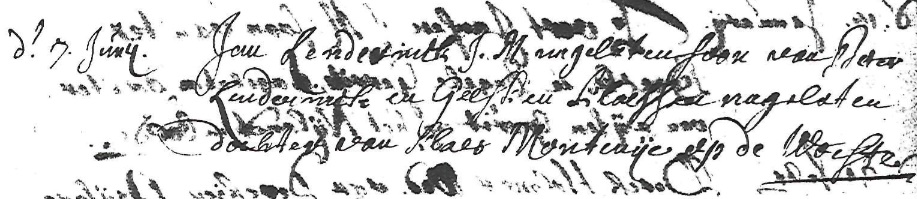 d! 7. Junij. Jan Lenderinck J. M. nagelaten soon van Peter
Lenderinck en Gessken Klaessen nagelaten
dochter van Klaes Montenije op de Woeste